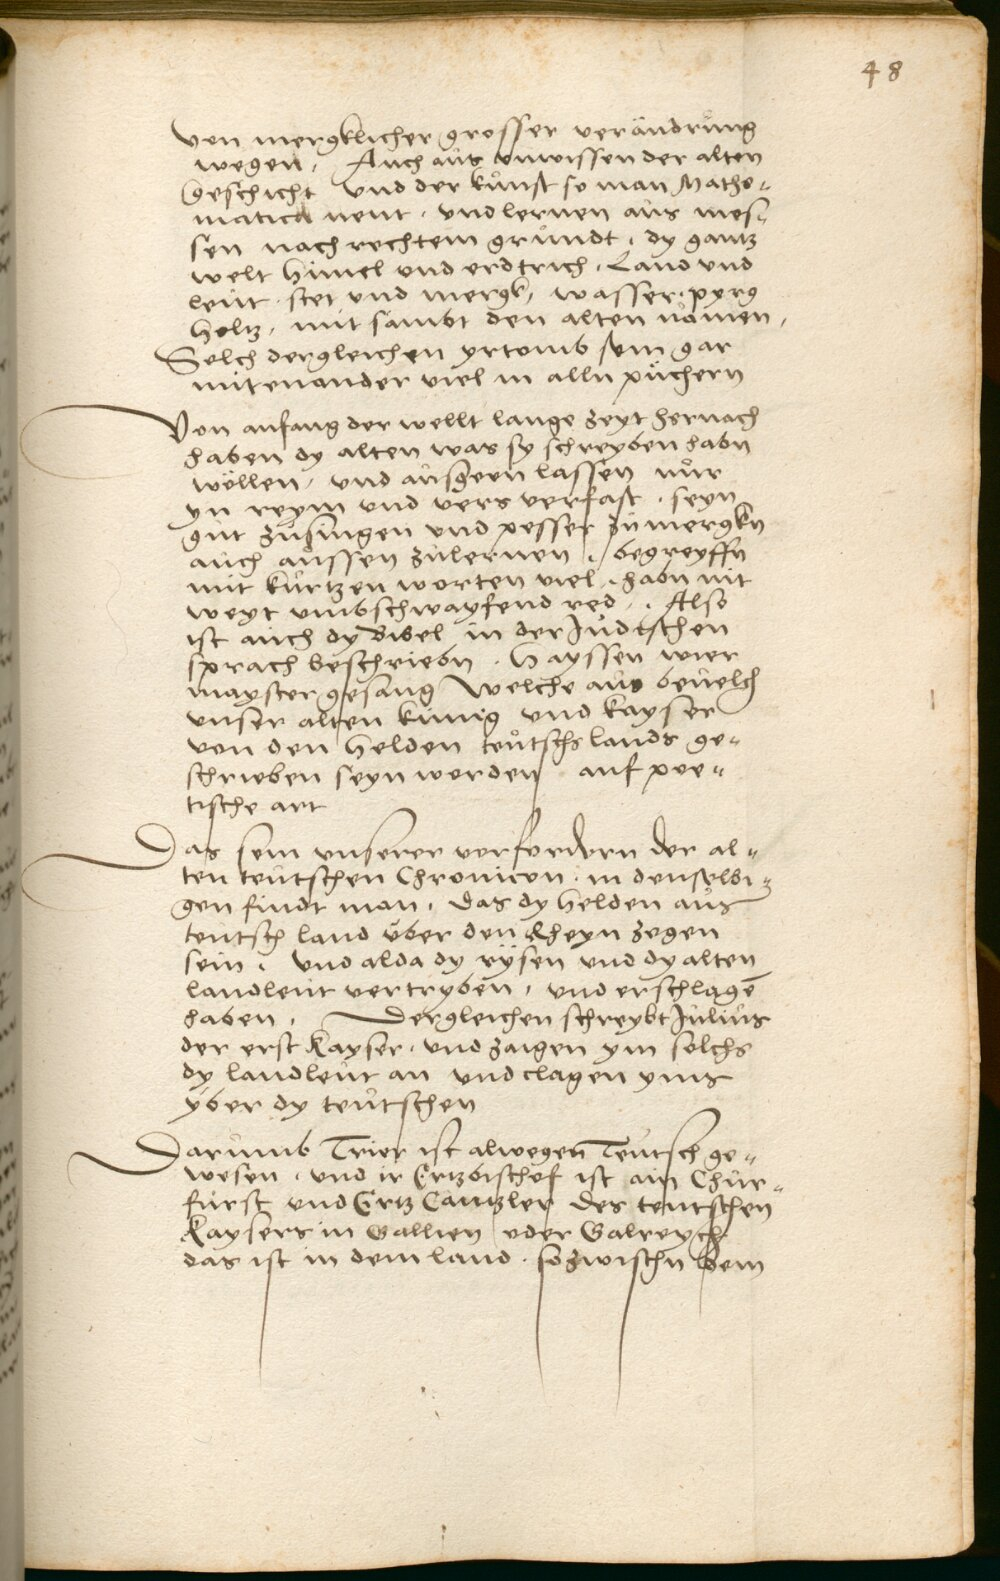 48
von mergklicher grosser verändrung
wegen, Auch aus unwissen der alten
geschicht und der kunst so man Mathe-
matica nent, und lernen aus mes-
sen nach rechtem grundt, dy gantz
welt himel und erdtrich, Land und
leut, stet und mergk, wasser, pyrg
holtz, mit sambt den alten namen,
Solch dergleichen yrtomb sein gar
mitenander viel in alln püchern
Von anfang der wellt lange zeyt hernach
haben dy alten was sy schreyben habn
wöllen, und ausgeen lassen nur
yn reym und vers verfast, seyn
gut zusingen und pesser zumergkn
auch aussen zulernen, begreyffn
mit kurtzen worten viel, habn nit
weyt umbschwayfend red, Also
ist auch dy Bibel in der Judischen
sprach beschriebn, hayssen wier
mayster gesang Welche aus beuelch
unser alten künig und kayser
von den helden teutschs lands ge-
schrieben seyn worden auf poe-
tische art
Das sein unserer verfordern der al-
ten teutschen Chronicon, in denselbi-
gen findt man, das dy helden aus
teutsch land über den Rheyn zogen
sein, und alda dy rysen und dy alten
landleut vertryben, und erschlagē
haben, Dergleichen schreybt Julius
der erst kayser, und zaigen ym solchs
dy landleut an und clagen yms
yber dy teutschen
Darumb Trier ist alwegen Teutsch ge-
wesen, und ir Ertzbischof ist ain Chur-
furst und Ertz Cantzler des teutschen
kaysers in Gallien oder Galreych
das ist in dem land, so zwischn dem